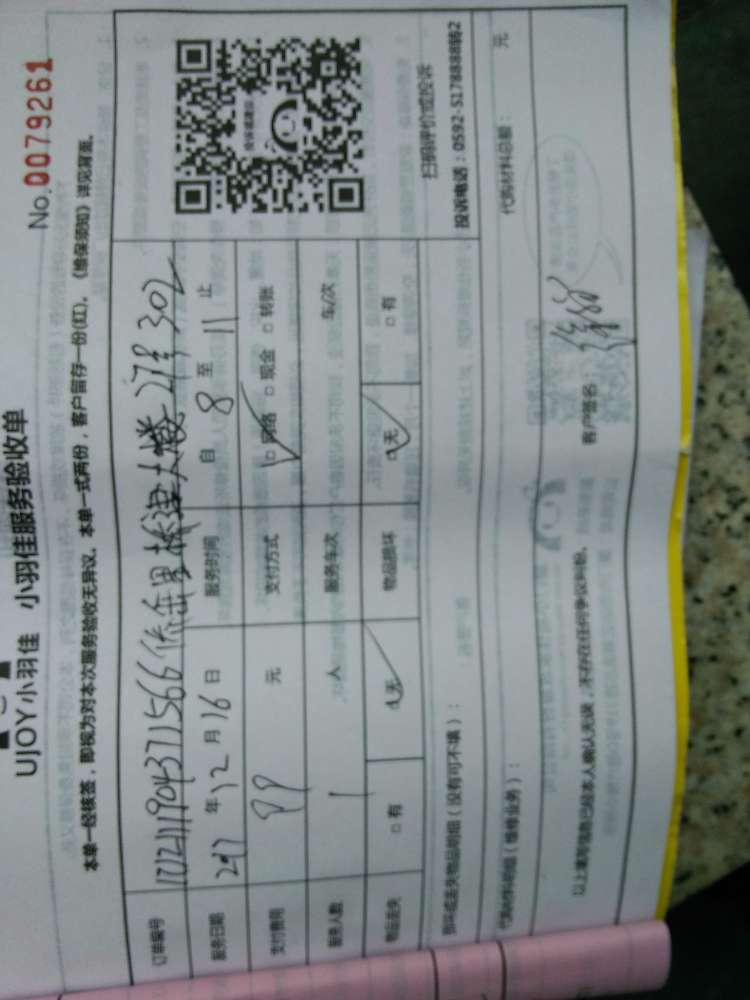 No.0079261
UJOY小羽佳 小羽佳服务验收单
本单一经核签，即视为对本次服务验收无异议。本单一式两份，客户留存一份(红)。《维保须知》详见背面。
订单编号
服务日期 2017 年 12 月 16 日 服务时间 自 8 至 11 止
支付费用 元 支付方式 □ 网络 □ 现金 □ 转账
服务人数 1 人 服务车次 车/次
物品丢失 □ 有 □ 无 物品损坏 □ 无 □ 有
扫码评价或投诉
投诉电话：0592-5178888转2
损坏或丢失物品明细（没有可不填）：
代购材料明细（维修业务）： 代购材料总额： 元
以上填写信息已经本人确认无误，不存在任何争议纠纷。 客户签名：